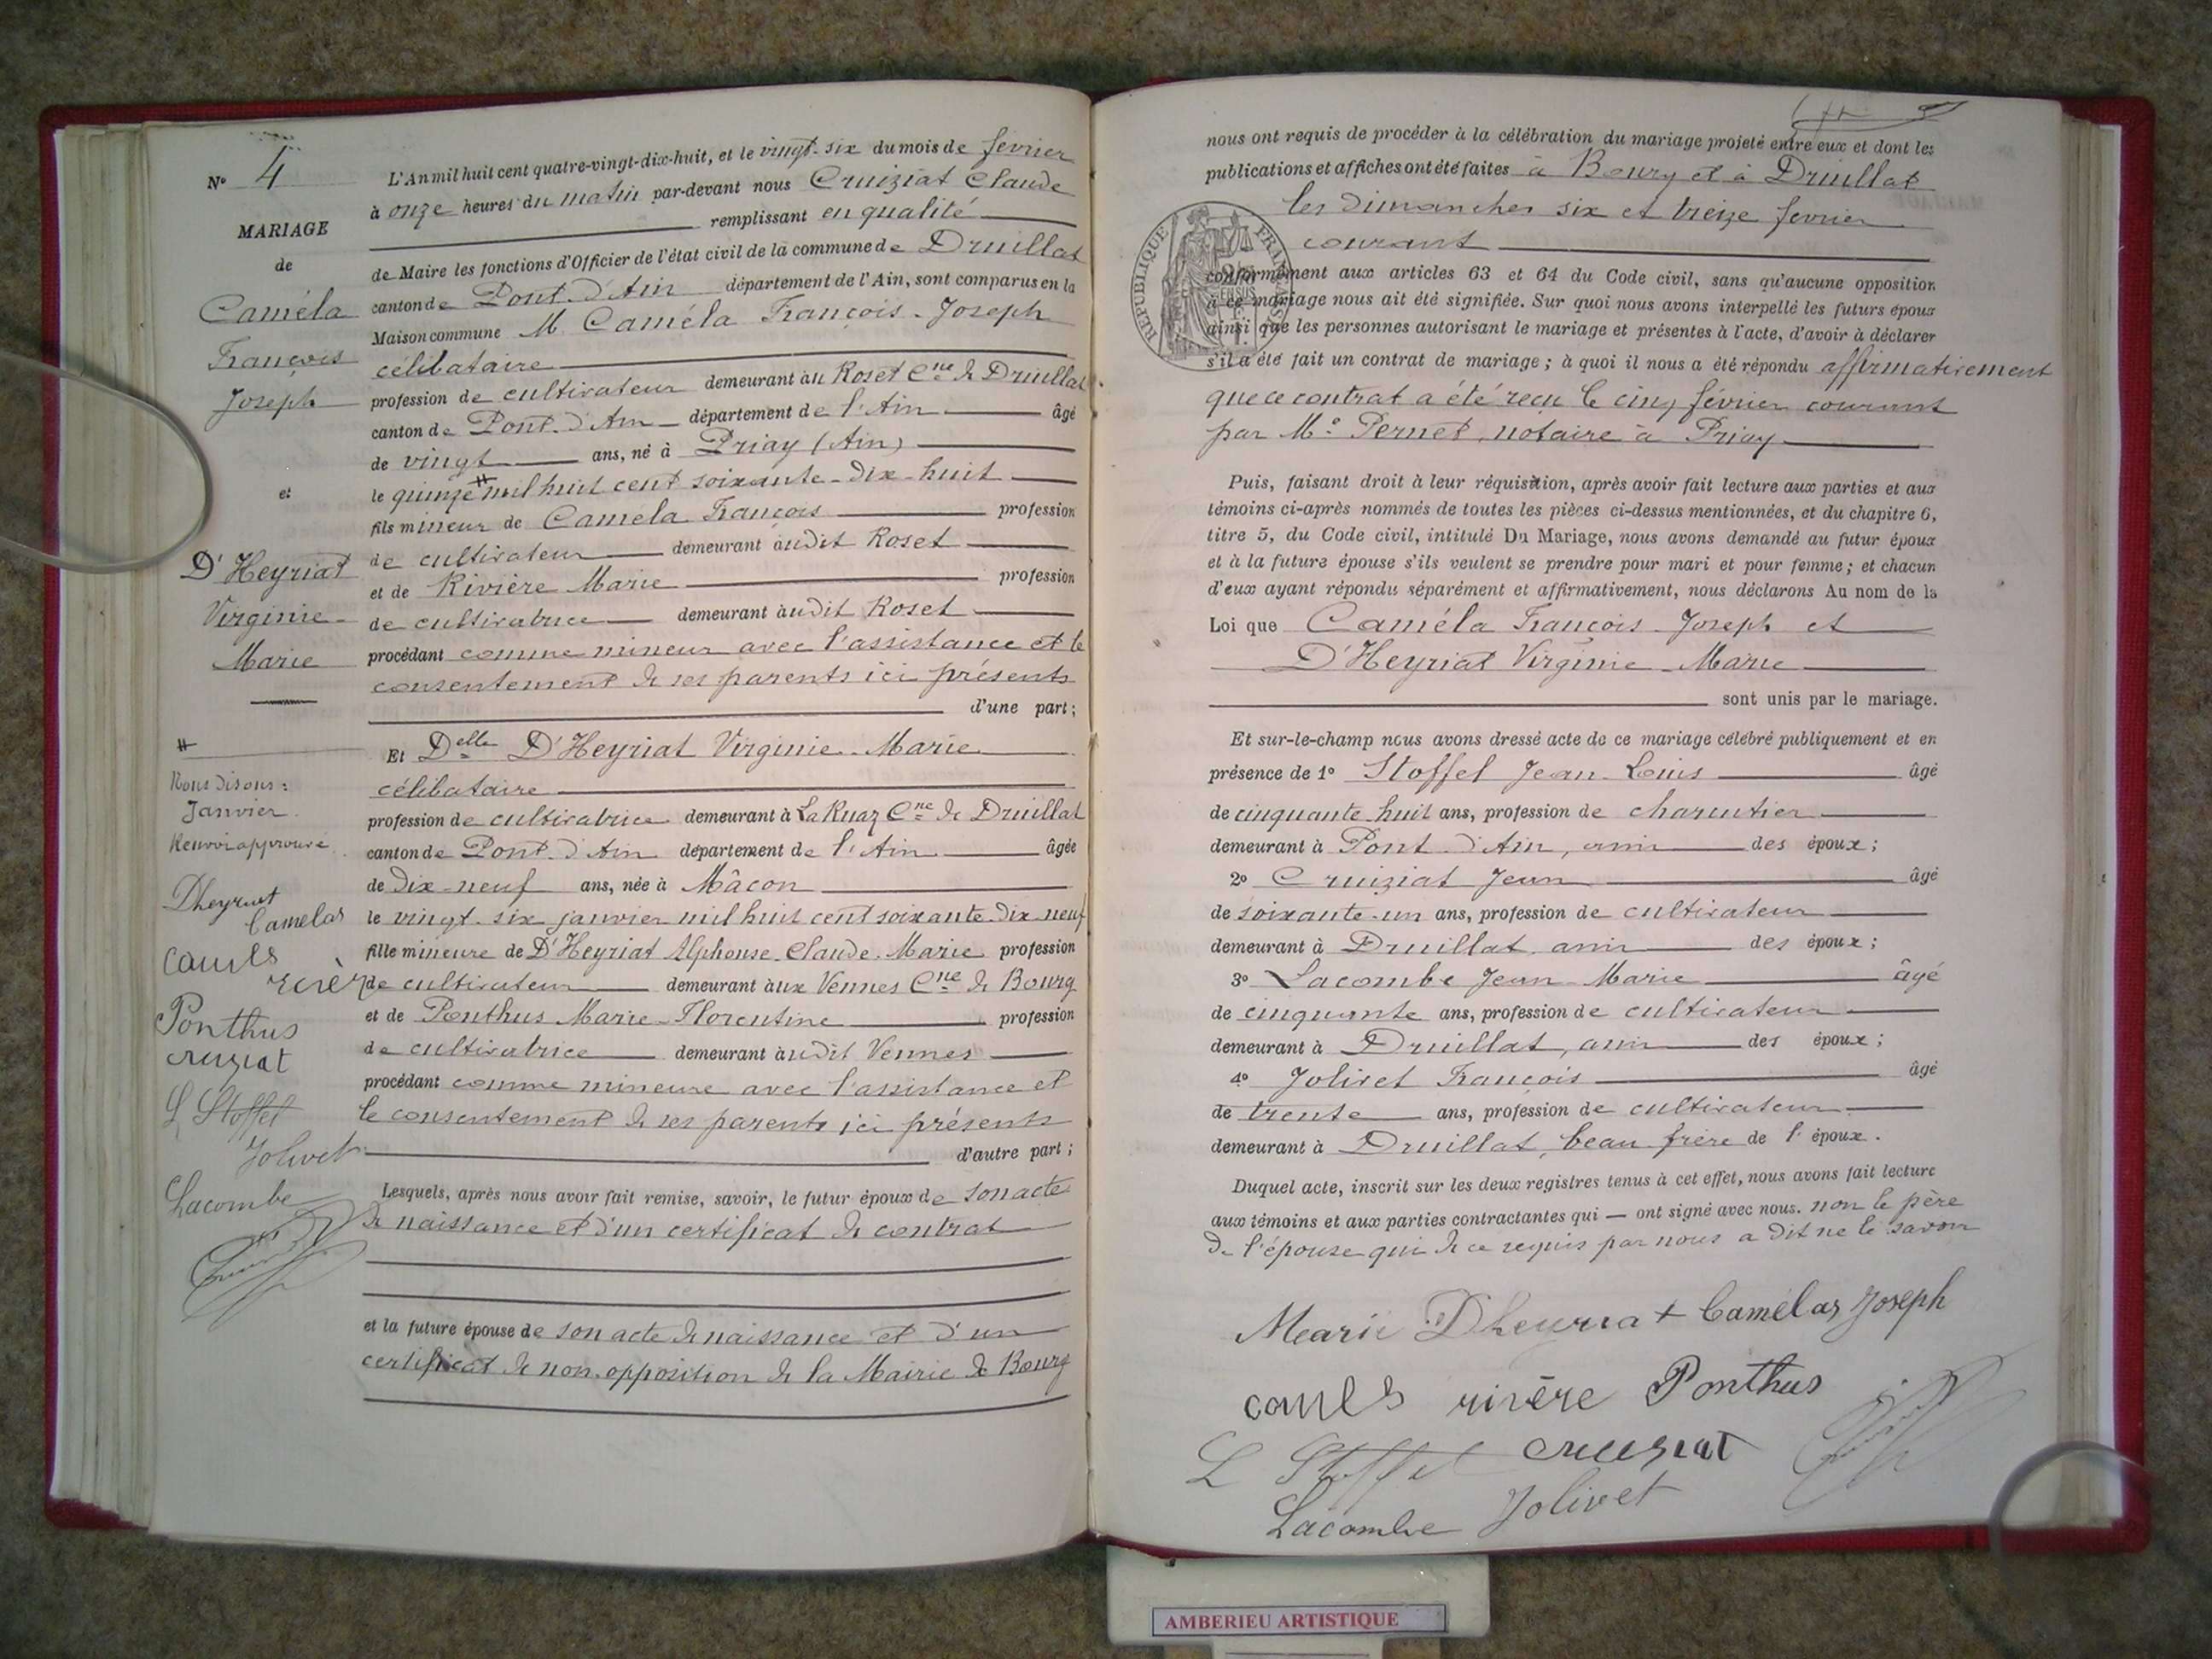 N° 4
MARIAGE
de
Caméla
François
Joseph
et
D'Heyriat
Virginie
Marie
Nous disons :
Janvier.
Renvoi approuvé.
Dheyriat
Camelas
rivière
Ponthus
cruziat
L Stoffel
Jolivet
Lacombe
L'An mil huit cent quatre-vingt-dix-huit, et le vingt-six du mois de février
à onze heures du matin par-devant nous Cruiziat Claude
remplissant en qualité
de Maire les fonctions d'Officier de l'état civil de la commune de Druillat
canton de Pont-d'Ain département de l'Ain, sont comparus en la
Maison commune M. Caméla François-Joseph
célibataire
profession de cultivateur demeurant au Roset Cne de Druillat
canton de Pont-d'Ain département de l'Ain âgé
de vingt ans, né à Priay (Ain)
le quinze # mil huit cent soixante-dix-huit
fils mineur de Caméla François profession
de cultivateur demeurant audit Roset
et de Rivière Marie profession
de cultivatrice demeurant audit Roset
procédant comme mineur avec l'assistance et le
consentement de ses parents ici présents
d'une part ;
#
Et Delle D'Heyriat Virginie-Marie
célibataire
profession de cultivatrice demeurant à La Ruaz Cne de Druillat
canton de Pont-d'Ain département de l'Ain âgée
de dix-neuf ans, née à Mâcon
le vingt-six janvier mil huit cent soixante-dix-neuf
fille mineure de D'Heyriat Alphonse-Claude-Marie profession
de cultivateur demeurant aux Vennes Cne de Bourg
et de Ponthus Marie-Florentine profession
de cultivatrice demeurant audit Vennes
procédant comme mineure avec l'assistance et
le consentement de ses parents ici présents
d'autre part ;
Lesquels, après nous avoir fait remise, savoir, le futur époux de son acte
de naissance et d'un certificat de contrat
et la future épouse de son acte de naissance et d'un
certificat de non-opposition de la Mairie de Bourg
nous ont requis de procéder à la célébration du mariage projeté entre eux et dont les
publications et affiches ont été faites à Bourg et à Druillat
les dimanches six et treize février
courant
REPUBLIQUE FRANÇAISE
conformément aux articles 63 et 64 du Code civil, sans qu'aucune opposition
à ce mariage nous ait été signifiée. Sur quoi nous avons interpellé les futurs époux
ainsi que les personnes autorisant le mariage et présentes à l'acte, d'avoir à déclarer
s'il a été fait un contrat de mariage ; à quoi il nous a été répondu affirmativement
que ce contrat a été reçu le cinq février courant
par Me Pernet, notaire à Priay
Puis, faisant droit à leur réquisition, après avoir fait lecture aux parties et aux
témoins ci-après nommés de toutes les pièces ci-dessus mentionnées, et du chapitre 6,
titre 5, du Code civil, intitulé Du Mariage, nous avons demandé au futur époux
et à la future épouse s'ils veulent se prendre pour mari et pour femme ; et chacun
d'eux ayant répondu séparément et affirmativement, nous déclarons Au nom de la
Loi que Caméla François-Joseph et
D'Heyriat Virginie-Marie
sont unis par le mariage.
Et sur-le-champ nous avons dressé acte de ce mariage célébré publiquement et en
présence de 1° Stoffel Jean-Louis âgé
de cinquante-huit ans, profession de charcutier
demeurant à Pont-d'Ain, ami des époux ;
2° Cruiziat Jean âgé
de soixante-un ans, profession de cultivateur
demeurant à Druillat, ami des époux ;
3° Lacombe Jean-Marie âgé
de cinquante ans, profession de cultivateur
demeurant à Druillat, ami des époux ;
4° Jolivet François âgé
de trente ans, profession de cultivateur
demeurant à Druillat, beau-frère de l'époux.
Duquel acte, inscrit sur les deux registres tenus à cet effet, nous avons fait lecture
aux témoins et aux parties contractantes qui — ont signé avec nous. non le père
de l'épouse qui de ce requis par nous a dit ne le savoir
Marie Dheyriat Camélas Joseph
rivère Ponthus
L Stoffel cruziat
Lacombe Jolivet
AMBERIEU ARTISTIQUE